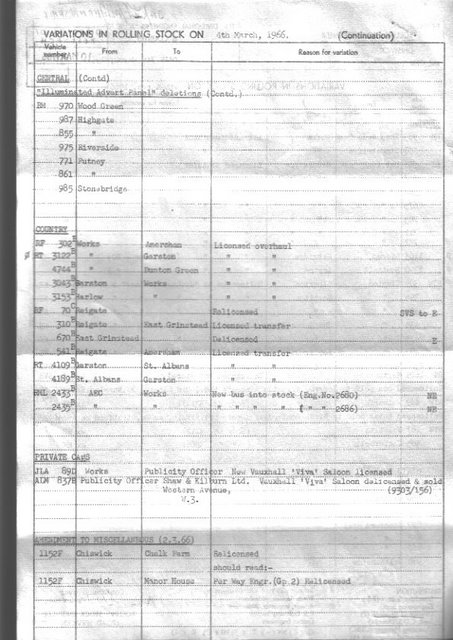 VARIATIONS IN ROLLING STOCK ON 4th March, 1966. (Continuation)
Vehicle number From To Reason for variation
CENTRAL (Contd)
"Illuminated Advert Panel" deletions (Contd.)
RM 970 Wood Green
987 Highgate
855 "
975 Riverside
771 Putney
861 "
985 Stonebridge
COUNTRY
RF 302B Works Amersham Licensed overhaul
RT 3122B " Garston " "
4744B " Dunton Green " "
3043B Garston Works " "
3153B Harlow " " "
RF 70C Reigate Relicensed SVS to E
310B Reigate East Grinstead Licensed transfer
670B East Grinstead Delicensed E
541B Reigate Amersham Licensed transfer
RT 4109B Garston St. Albans " "
4189B St. Albans Garston " "
RML 2433B AEC Works New bus into stock (Eng.No.2680) NE
2435B " " " " " " ( " " 2686) NE
PRIVATE CARS
JLA 89D Works Publicity Officer New Vauxhall 'Viva' Saloon licensed
ALM 837B Publicity Officer Shaw & Kilburn Ltd. Vauxhall 'Viva' Saloon delicensed & sold
Western Avenue, (9303/156)
W.3.
AMENDMENT TO MISCELLANEOUS (2.3.66)
1152F Chiswick Chalk Farm Relicensed
should read:-
1152F Chiswick Manor House Per Way Engr.(Gp.2) Relicensed